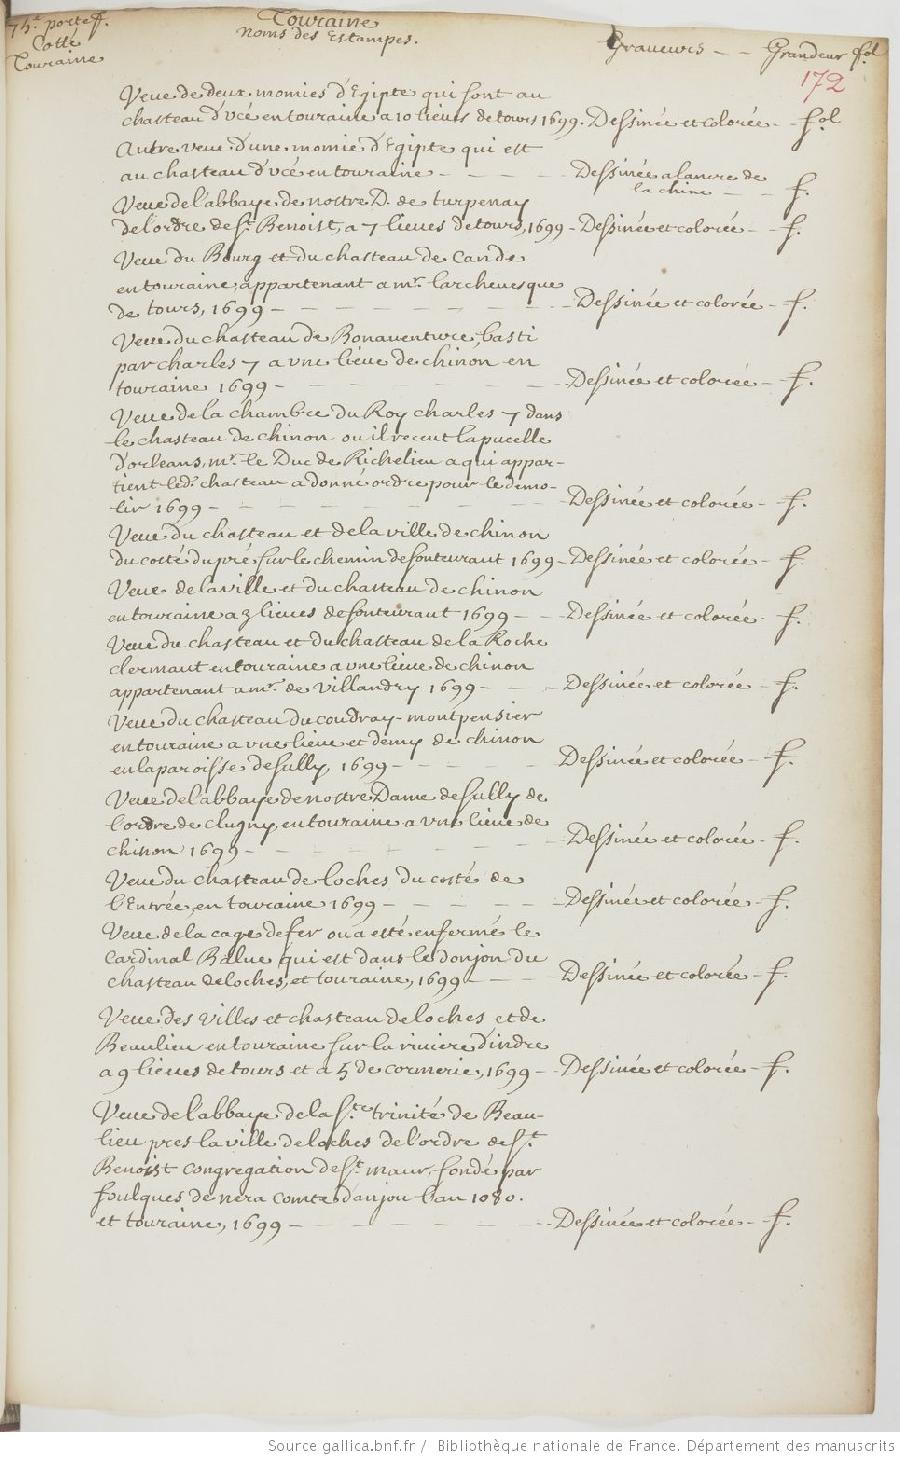 75.e portef.
Cotté
Touraine
Touraine
Noms des Estampes.
Graveurs - - Grandeur fol
172
Veue de deux momies d'Egipte qui sont au
chasteau d'Vcé en touraine a 10 lieues de tours 1699. Dessinée et colorée - fol
Autre veue d'une momie d'Egipte qui est
au chasteau d'vcé en touraine - - - - Dessinée a l'ancre de
la chine - - f.
Veue de l'abbaye de nostre D. de turpenay
de l'ordre de St. Benoist, a 7 lieues de tours, 1699 - Dessinée et colorée - f.
Veue du Bourg et du chasteau de Cande
en touraine, appartenant a mr. l'archevesque
de tours, 1699 - - - - - - - - Dessinée et colorée - f.
Veue du chasteau de Bonaventure, basti
par charles 7 a vne lieue de chinon en
touraine 1699 - - - - - - - Dessinée et colorée - f.
Veue de la chambre du Roy charles 7 dans
le chasteau de chinon ou il receut la pucelle
d'orleans, mr. le Duc de Richelieu a qui appar-
tient led. chasteau a donné ordre pour le demo-
lir 1699 - - - - - - - - Dessinée et colorée - f.
Veue du chasteau et de la ville de chinon
du costé du pré, sur le chemin de fonteuraut 1699 - Dessinée et colorée - f.
Veue de la ville et du chasteau de chinon
en touraine a 3 lieues de fonteuraut 1699 - - Dessinée et colorée - f.
Veue du chasteau et du chasteau de la Roche
clermaut en touraine a vne lieue de chinon
appartenant a mr. de Villandry 1699 - - - Dessinée et colorée - f.
Veue du chasteau du coudray-montpensier
en touraine a vne lieue et demy de chinon
en la paroisse de suilly, 1699 - - - - - Dessinée et colorée - f.
Veue de l'abbaye de nostre Dame de suilly de
l'ordre de clugny, en touraine a vne lieue de
chinon 1699 - - - - - - - - Dessinée et colorée - f.
Veue du chasteau de loches du costé de
l'Entrée, en touraine 1699 - - - - - Dessinée et colorée - f.
Veue de la cage de fer ou a esté enfermé le
Cardinal Balue qui est dans le donjon du
chasteau de loches, et touraine, 1699 - - - Dessinée et colorée - f.
Veue des villes et chasteau de loches et de
Beaulieu en touraine sur la riviere d'indre
a 9 lieues de tours et a 5 de cormerie, 1699 - - Dessinée et colorée - f.
Veue de l'abbaye de la Ste. trinité de Beau-
lieu pres la ville de loches de l'ordre de St.
Benoist congregation de St. maur, fondé par
foulques de nera comte d'anjou l'an 1080.
et touraine, 1699 - - - - - - - Dessinée et colorée - f.
Source gallica.bnf.fr / Bibliothèque nationale de France. Département des manuscrits